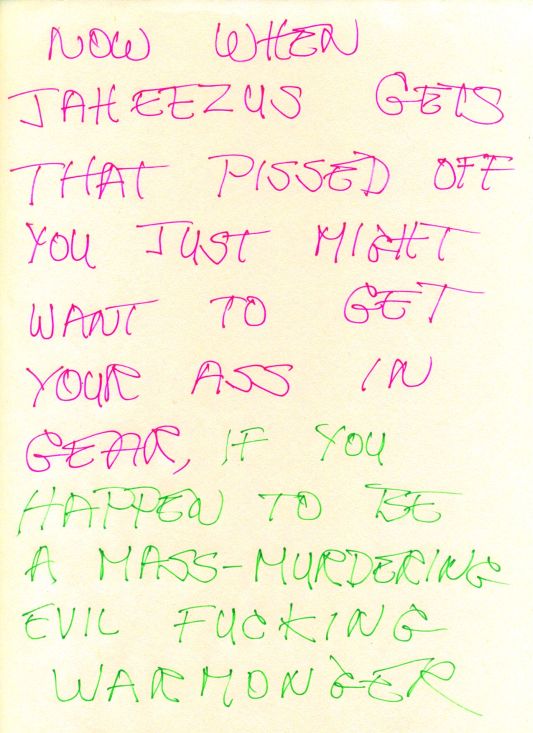 NOW WHEN
JAHEEZUS GETS
THAT PISSED OFF
YOU JUST MIGHT
WANT TO GET
YOUR ASS IN
GEAR, IF YOU
HAPPEN TO BE
A MASS-MURDERING
EVIL FUCKING
WARMONGER